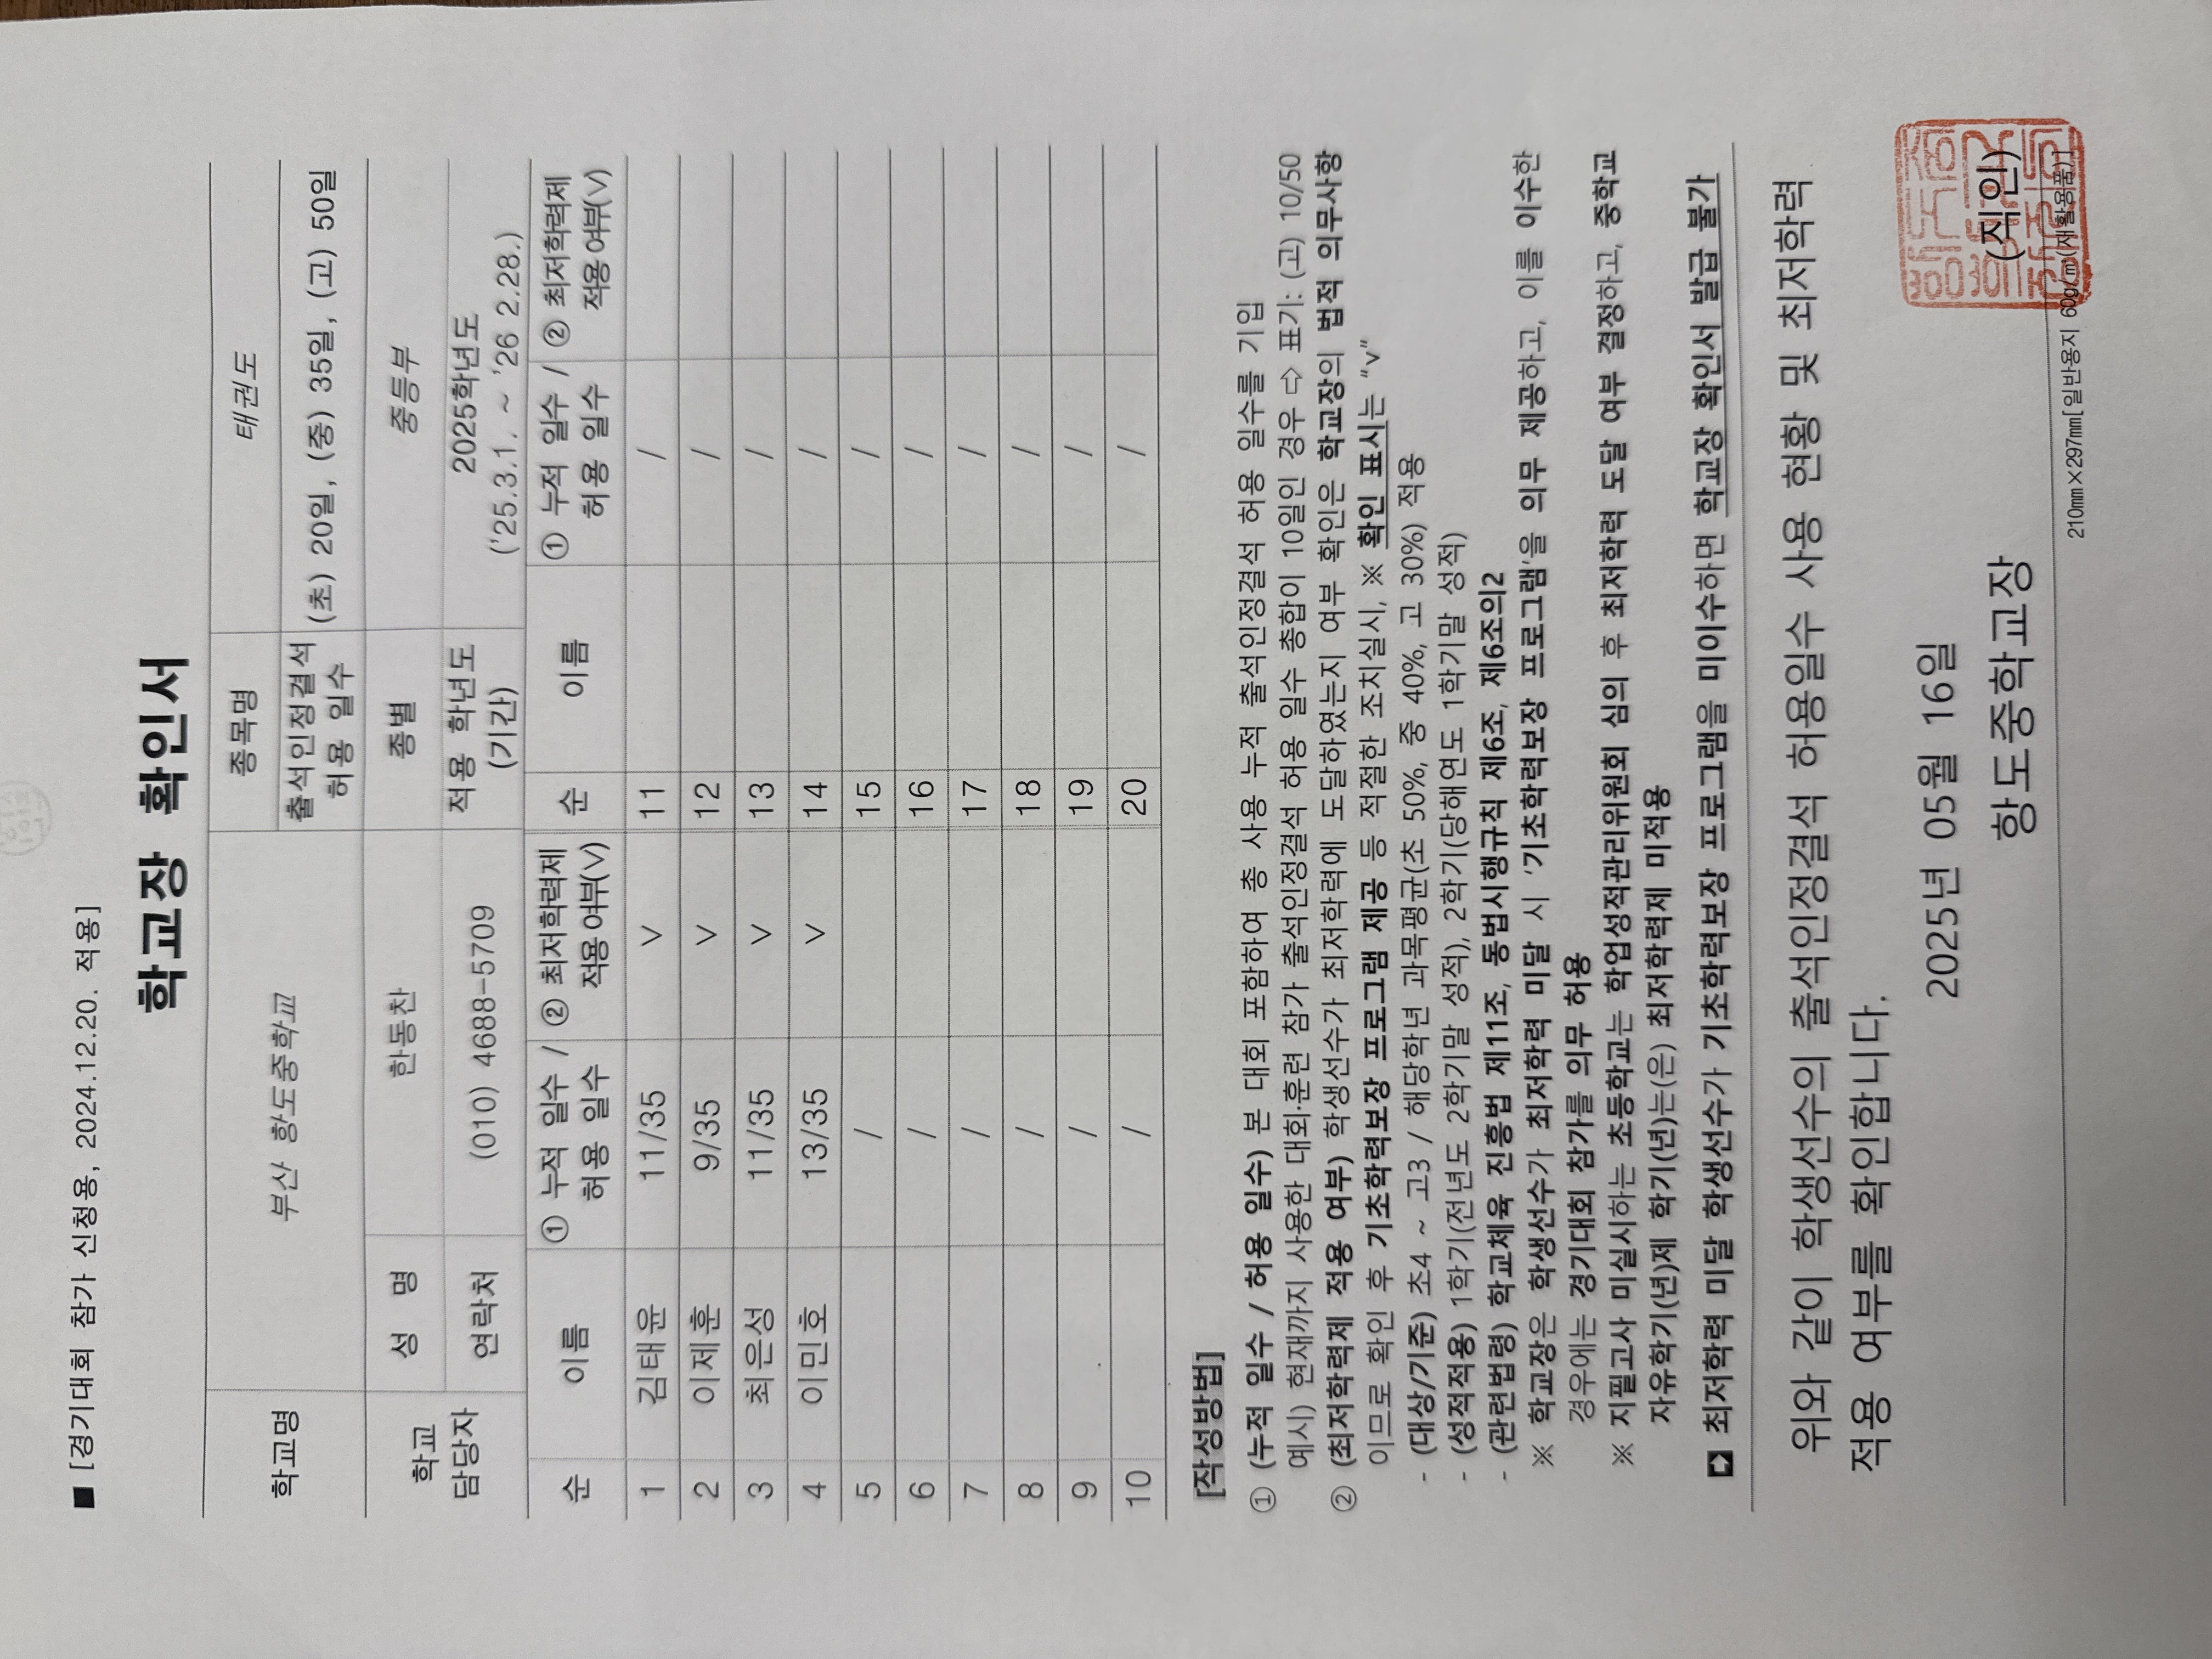 ■ [경기대회 참가 신청용, 2024.12.20. 적용]
학교장 확인서
학교명 부산 항도중학교 종목명 태권도
출석인정결석 허용 일수 (초) 20일, (중) 35일, (고) 50일
학교 담당자 성 명 한동찬 종별 중등부
연락처 (010) 4688-5709 적용 학년도 (기간) 2025학년도 ('25.3.1. ~ '26 2.28.)
순 이름 ① 누적 일수 / 허용 일수 ② 최저학력제 적용여부(V) 순 이름 ① 누적 일수 / 허용 일수 ② 최저학력제 적용여부(V)
1 김태윤 11/35 V 11 /
2 이제훈 9/35 V 12 /
3 최은성 11/35 V 13 /
4 이민호 13/35 V 14 /
5 / 15 /
6 / 16 /
7 / 17 /
8 / 18 /
9 / 19 /
10 / 20 /
[작성방법]
① (누적 일수 / 허용 일수) 본 대회 포함하여 총 사용 누적 출석인정결석 허용 일수를 기입
예시) 현재까지 사용한 대회·훈련 참가 출석인정결석 허용 일수 총합이 10일인 경우 ⇨ 표기: (고) 10/50
② (최저학력제 적용 여부) 학생선수가 최저학력에 도달하였는지 여부 확인은 학교장의 법적 의무사항
이므로 확인 후 기초학력보장 프로그램 제공 등 적절한 조치실시, ※ 확인 표시는 “v”
- (대상/기준) 초4 ~ 고3 / 해당학년 과목평균(초 50%, 중 40%, 고 30%) 적용
- (성적적용) 1학기(전년도 2학기말 성적), 2학기(당해연도 1학기말 성적)
- (관련법령) 학교체육 진흥법 제11조, 동법시행규칙 제6조, 제6조의2
※ 학교장은 학생선수가 최저학력 미달 시 '기초학력보장 프로그램'을 의무 제공하고, 이를 이수한
경우에는 경기대회 참가를 의무 허용
※ 지필고사 미실시하는 초등학교는 학업성적관리위원회 심의 후 최저학력 도달 여부 결정하고, 중학교
자유학기(년)제 학기(년)는(은) 최저학력제 미적용
최저학력 미달 학생선수가 기초학력보장 프로그램을 미이수하면 학교장 확인서 발급 불가
위와 같이 학생선수의 출석인정결석 허용일수 사용 현황 및 최저학력
적용 여부를 확인합니다.
2025년 05월 16일
항도중학교장 (직인)
210㎜×297㎜[일반용지 60g/㎡(재활용품)]